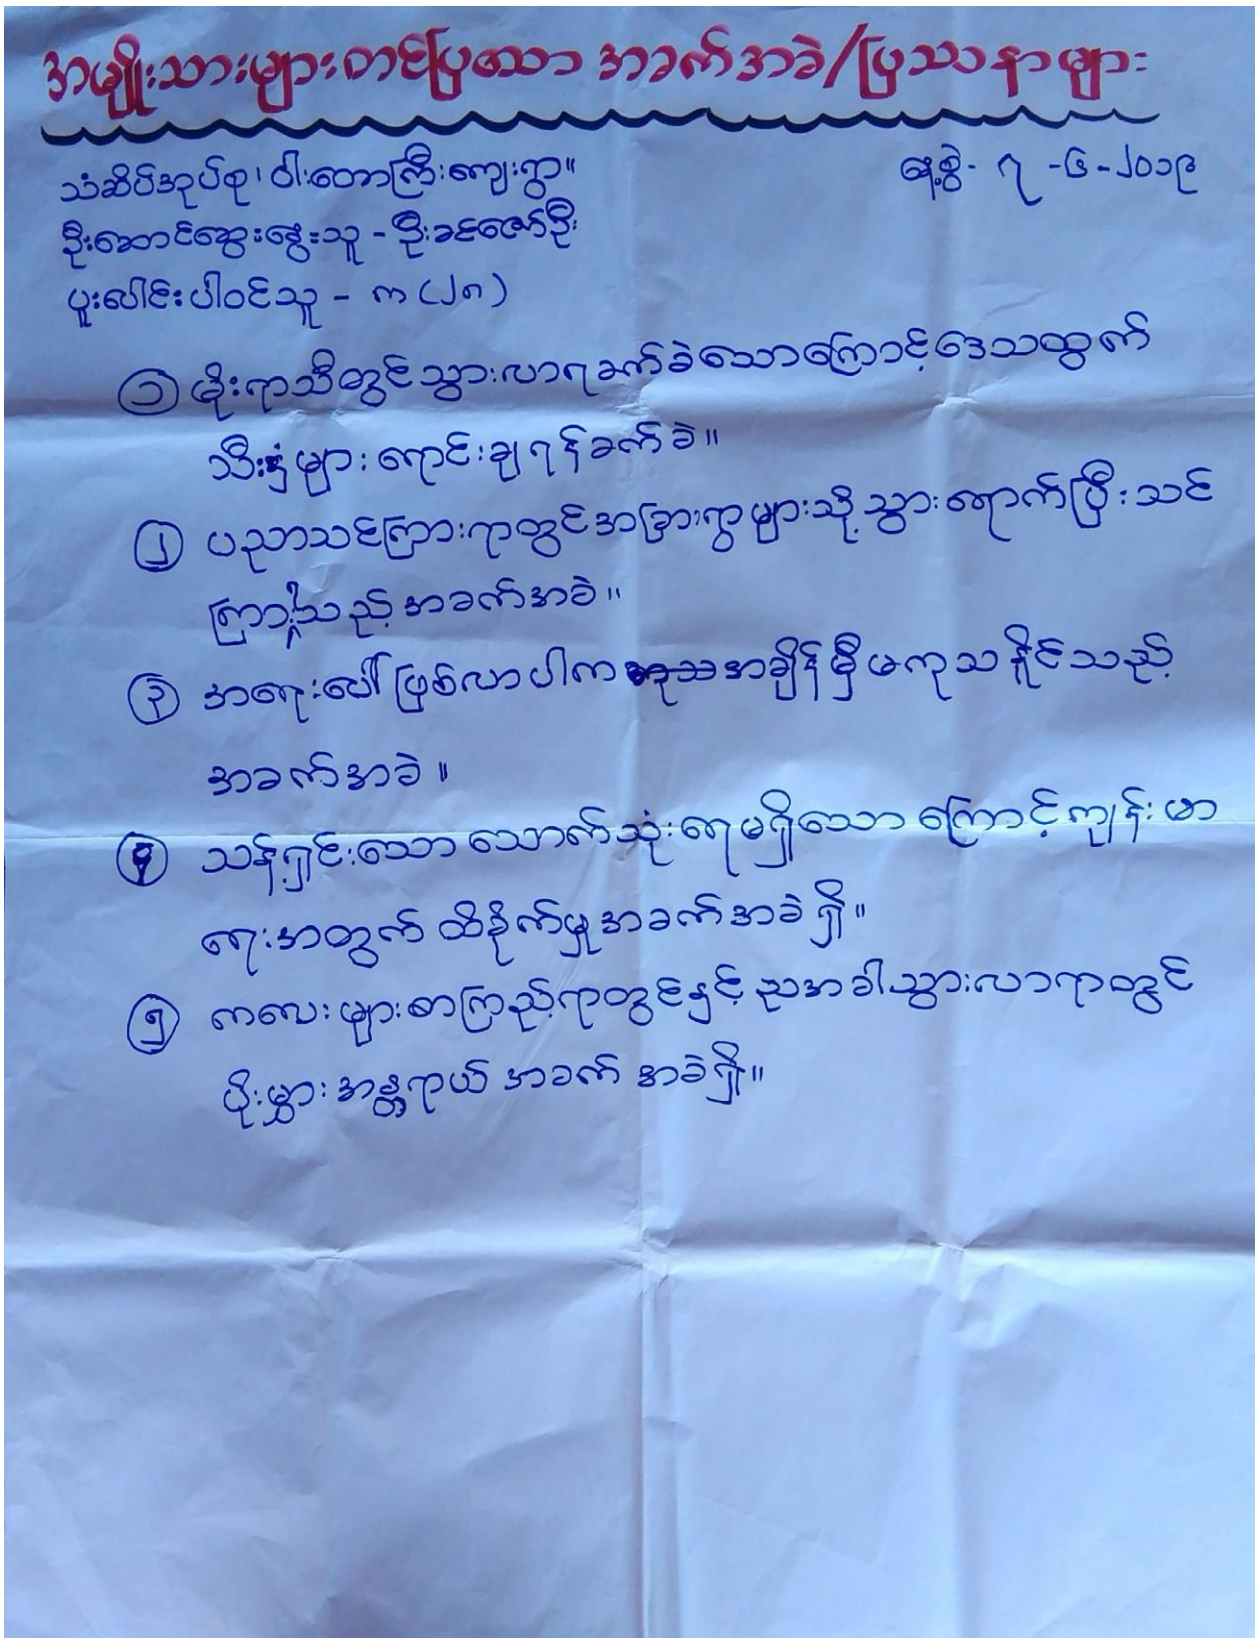 အမျိုးသားများတင်ပြသော အခက်အခဲ/ပြဿနာများ
သံဆိပ်အုပ်စု၊ ဝါးတောကြီးကျေးရွာ။ နေ့စွဲ - ၇ -၆-၂၀၁၉
ဦးဆောင်ဆွေးနွေးသူ - ဦးခင်ဇော်ဦး
ပူးပေါင်းပါဝင်သူ - က (၂၈)
၁ မိုးရာသီတွင်သွားလာရခက်ခဲသောကြောင့်ဒေသထွက်
သီးနှံများ ရောင်းချရန်ခက်ခဲ။
၂ ပညာသင်ကြားရာတွင်အခြားရွာများသို့သွားရောက်ပြီးသင်
ကြားရသည့်အခက်အခဲ။
၃ အရေးပေါ်ဖြစ်လာပါက အချိန်မှီမကုသနိုင်သည့်
အခက်အခဲ။
၄ သန့်ရှင်းသောသောက်သုံးရေမရှိသောကြောင့်ကျန်းမာ
ရေးအတွက် ထိခိုက်မှုအခက်အခဲရှိ။
၅ ကလေးများစာကြည့်ရာတွင်နှင့်ညအခါသွားလာရာတွင်
ပိုးမွှားအန္တရာယ် အခက်အခဲရှိ။